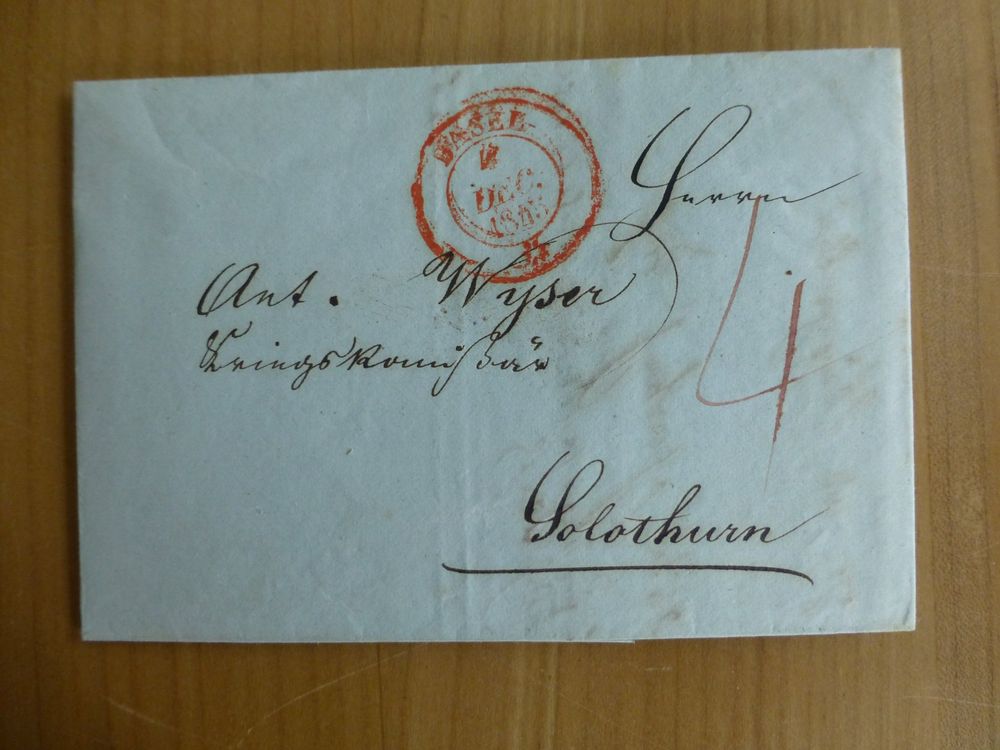 BASEL
DEC.
Herrn
Ant. Wyser
Kriegskomissär
4
Solothurn